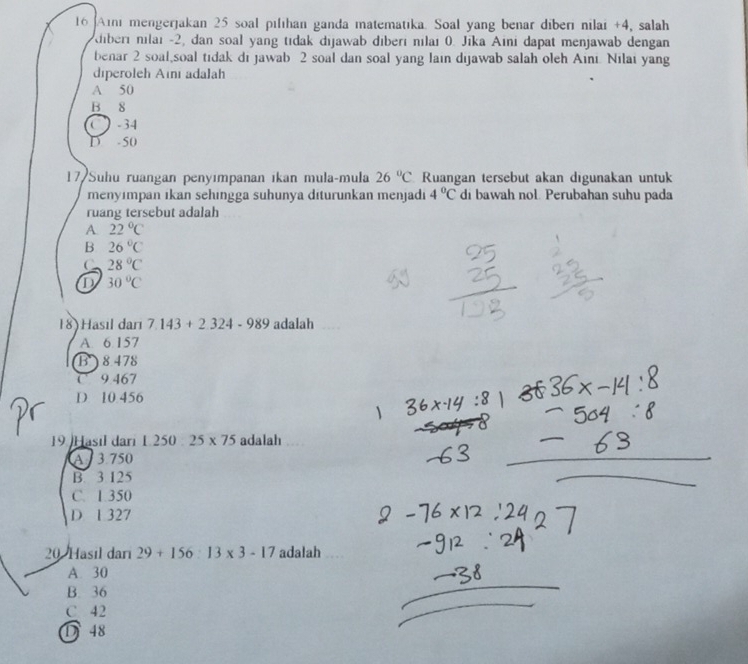 16 Aini mengerjakan 25 soal pilihan ganda matematika. Soal yang benar diberi nilai +4, salah
diberi nilai -2, dan soal yang tidak dijawab diberi nilai 0. Jika Aini dapat menjawab dengan
benar 2 soal,soal tidak di jawab 2 soal dan soal yang lain dijawab salah oleh Aini. Nilai yang
diperoleh Aini adalah
A. 50
B. 8
C. -34
D. -50
17 Suhu ruangan penyimpanan ikan mula-mula 26 ⁰C. Ruangan tersebut akan digunakan untuk
menyimpan ikan sehingga suhunya diturunkan menjadi 4 ⁰C di bawah nol. Perubahan suhu pada
ruang tersebut adalah ....
A. 22 ⁰C
B. 26 ⁰C
C. 28 ⁰C
D. 30 ⁰C
25
25
18 Hasil dari 7.143 + 2.324 - 989 adalah ....
A. 6.157
B. 8.478
C. 9.467
D. 10.456
Pr
1 36x-14 :8
-63
36x-14:8
- 504 :8
- 63
19 Hasil dari 1.250 : 25 x 75 adalah ....
A. 3.750
B. 3.125
C. 1.350
D. 1.327
2 -76 x12 :24
-912 : 24
-38
27
20 Hasil dari 29 + 156 : 13 x 3 - 17 adalah ....
A. 30
B. 36
C. 42
D. 48